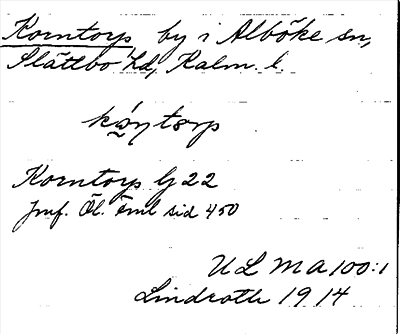 Korntorp by i Alböke sn,
Slättbo hd, Kalm. l.
Korntorp G 22
Jmf. Öl. Fml sid 450
ULMA 100:1
Lindroth 1914